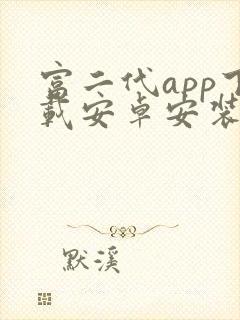 富二代app下
载安卓安装
默溪